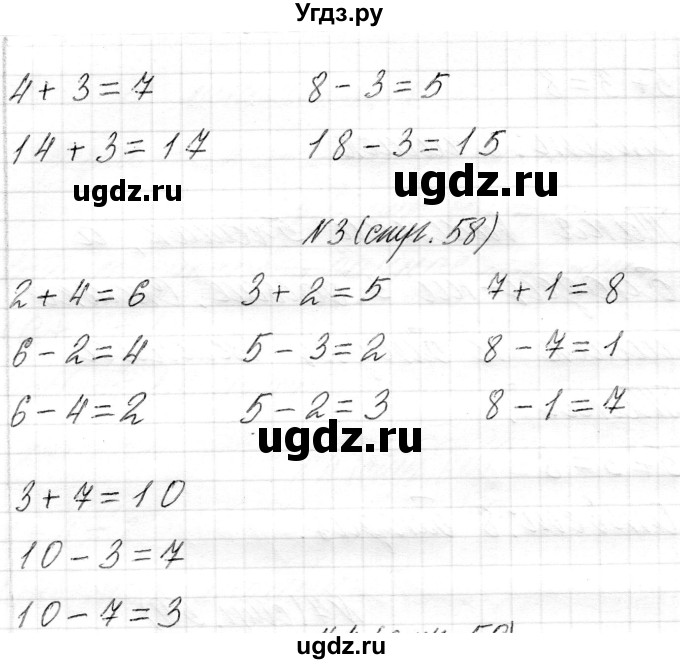 Угдз.ру
4 + 3 = 7 8 - 3 = 5
14 + 3 = 17 18 - 3 = 15
ugdz.ru ugdz.ru
N3 (стр. 58)
2 + 4 = 6 3 + 2 = 5 7 + 1 = 8
6 - 2 = 4 5 - 3 = 2 8 - 7 = 1
6 - 4 = 2 5 - 2 = 3 8 - 1 = 7
ugdz.ru
3 + 7 = 10
10 - 3 = 7
10 - 7 = 3
ugdz.ru